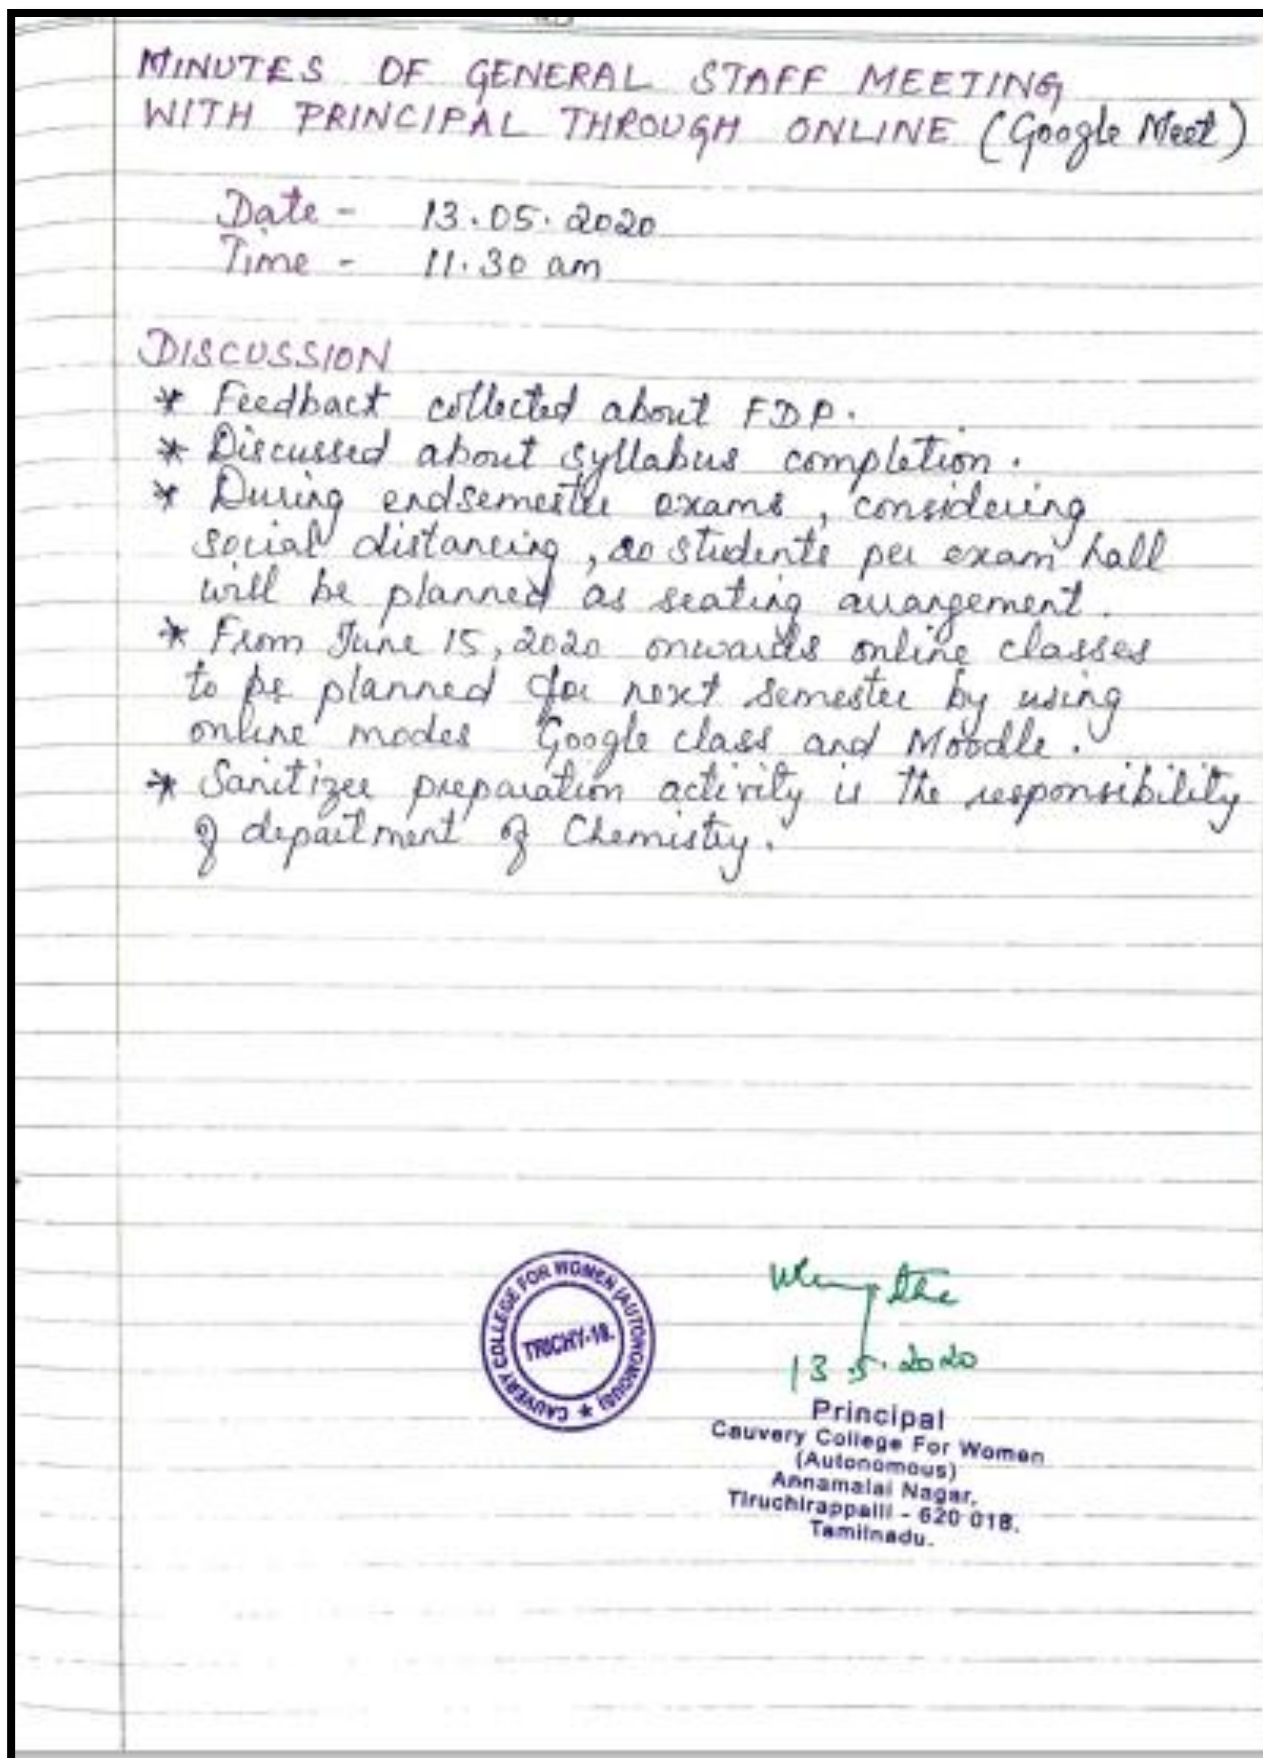 MINUTES OF GENERAL STAFF MEETING
WITH PRINCIPAL THROUGH ONLINE (Google Meet)
Date - 13.05.2020
Time - 11.30 am
DISCUSSION
* Feedback collected about FDP.
* Discussed about syllabus completion.
* During endsemester exams, considering
social distancing, 20 students per exam hall
will be planned as seating arrangement.
* From June 15, 2020 onwards online classes
to be planned for next semester by using
online modes Google class and Moodle.
* Sanitizer preparation activity is the responsibility
of department of Chemistry.
CAUVERY COLLEGE FOR WOMEN (AUTONOMOUS) ★
TRICHY-18.
13.5.2020
Principal
Cauvery College For Women
(Autonomous)
Annamalai Nagar,
Tiruchirappalli - 620 018.
Tamilnadu.